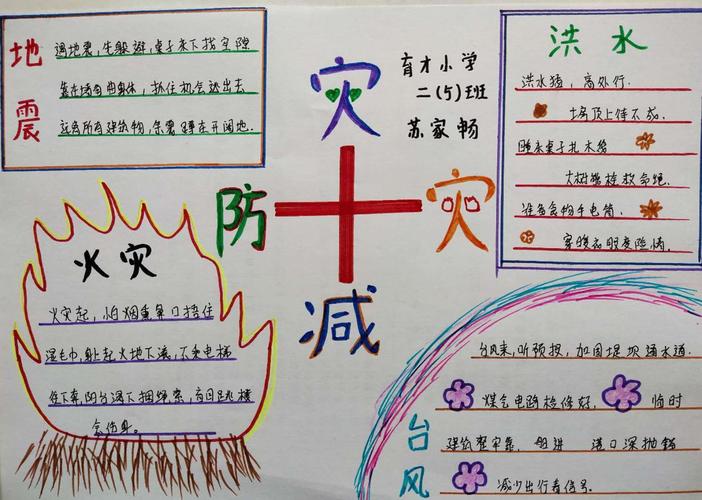 地震
遇地震,先躲避,桌子床下找空隙
靠在墙角曲身体,抓住机会逃出去
远离所有建筑物,余震蹲在开阔地.
灾
防
灾
减
育才小学
二(5)班
苏家畅
洪水
洪水猛,高处行.
土房顶上待不成.
睡床桌子扎木筏
大树能拴救命绳.
准备食物手电筒.
穿暖衣服度险情.
火灾
火灾起,怕烟熏鼻口捂住
湿毛巾,身上起火地上滚,不乘电梯
往下奔,阳台滑下捆绳索,盲目跳楼
会伤身.
台风
台风来,听预报,加固堤坝通水道.
煤气电路检修好, 临时
建筑整牢靠,船进 港口深抛锚
减少出行看信号.